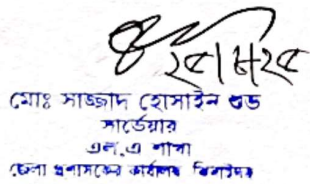 ২৫|৮|২৫
মোঃ সাজ্জাদ হোসাইন শুভ
সার্ভেয়ার
এল.এ শাখা
জেলা প্রশাসকের কার্যালয় ঝিনাইদহ